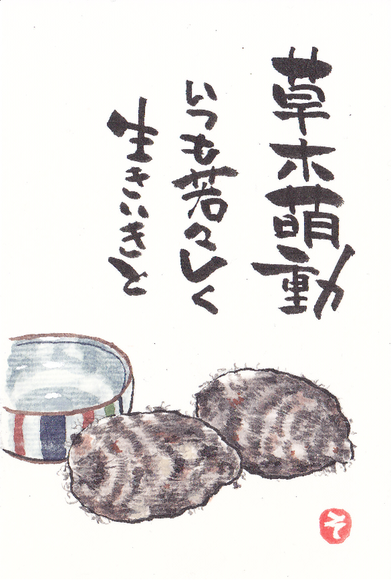 草木萌動
いつも若々しく
生きいきと
そ